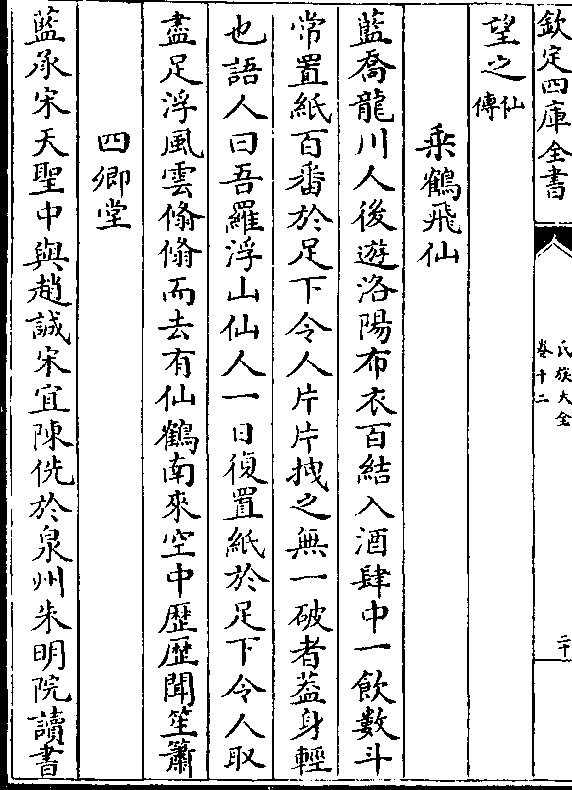 欽定四庫全書
氏族大全
卷十二
二十
望之仙傳
乘鶴飛仙
藍喬龍川人後遊洛陽布衣百結入酒肆中一飲數斗
常置紙百番於足下令人片片拽之無一破者葢身輕
也語人曰吾羅浮山仙人一日復置紙於足下令人取
盡足浮風雲翛翛而去有仙鶴南來空中歷歷聞笙簫
四卿堂
藍承宋天聖中與趙誠宋宜陳侁於泉州朱明院讀書